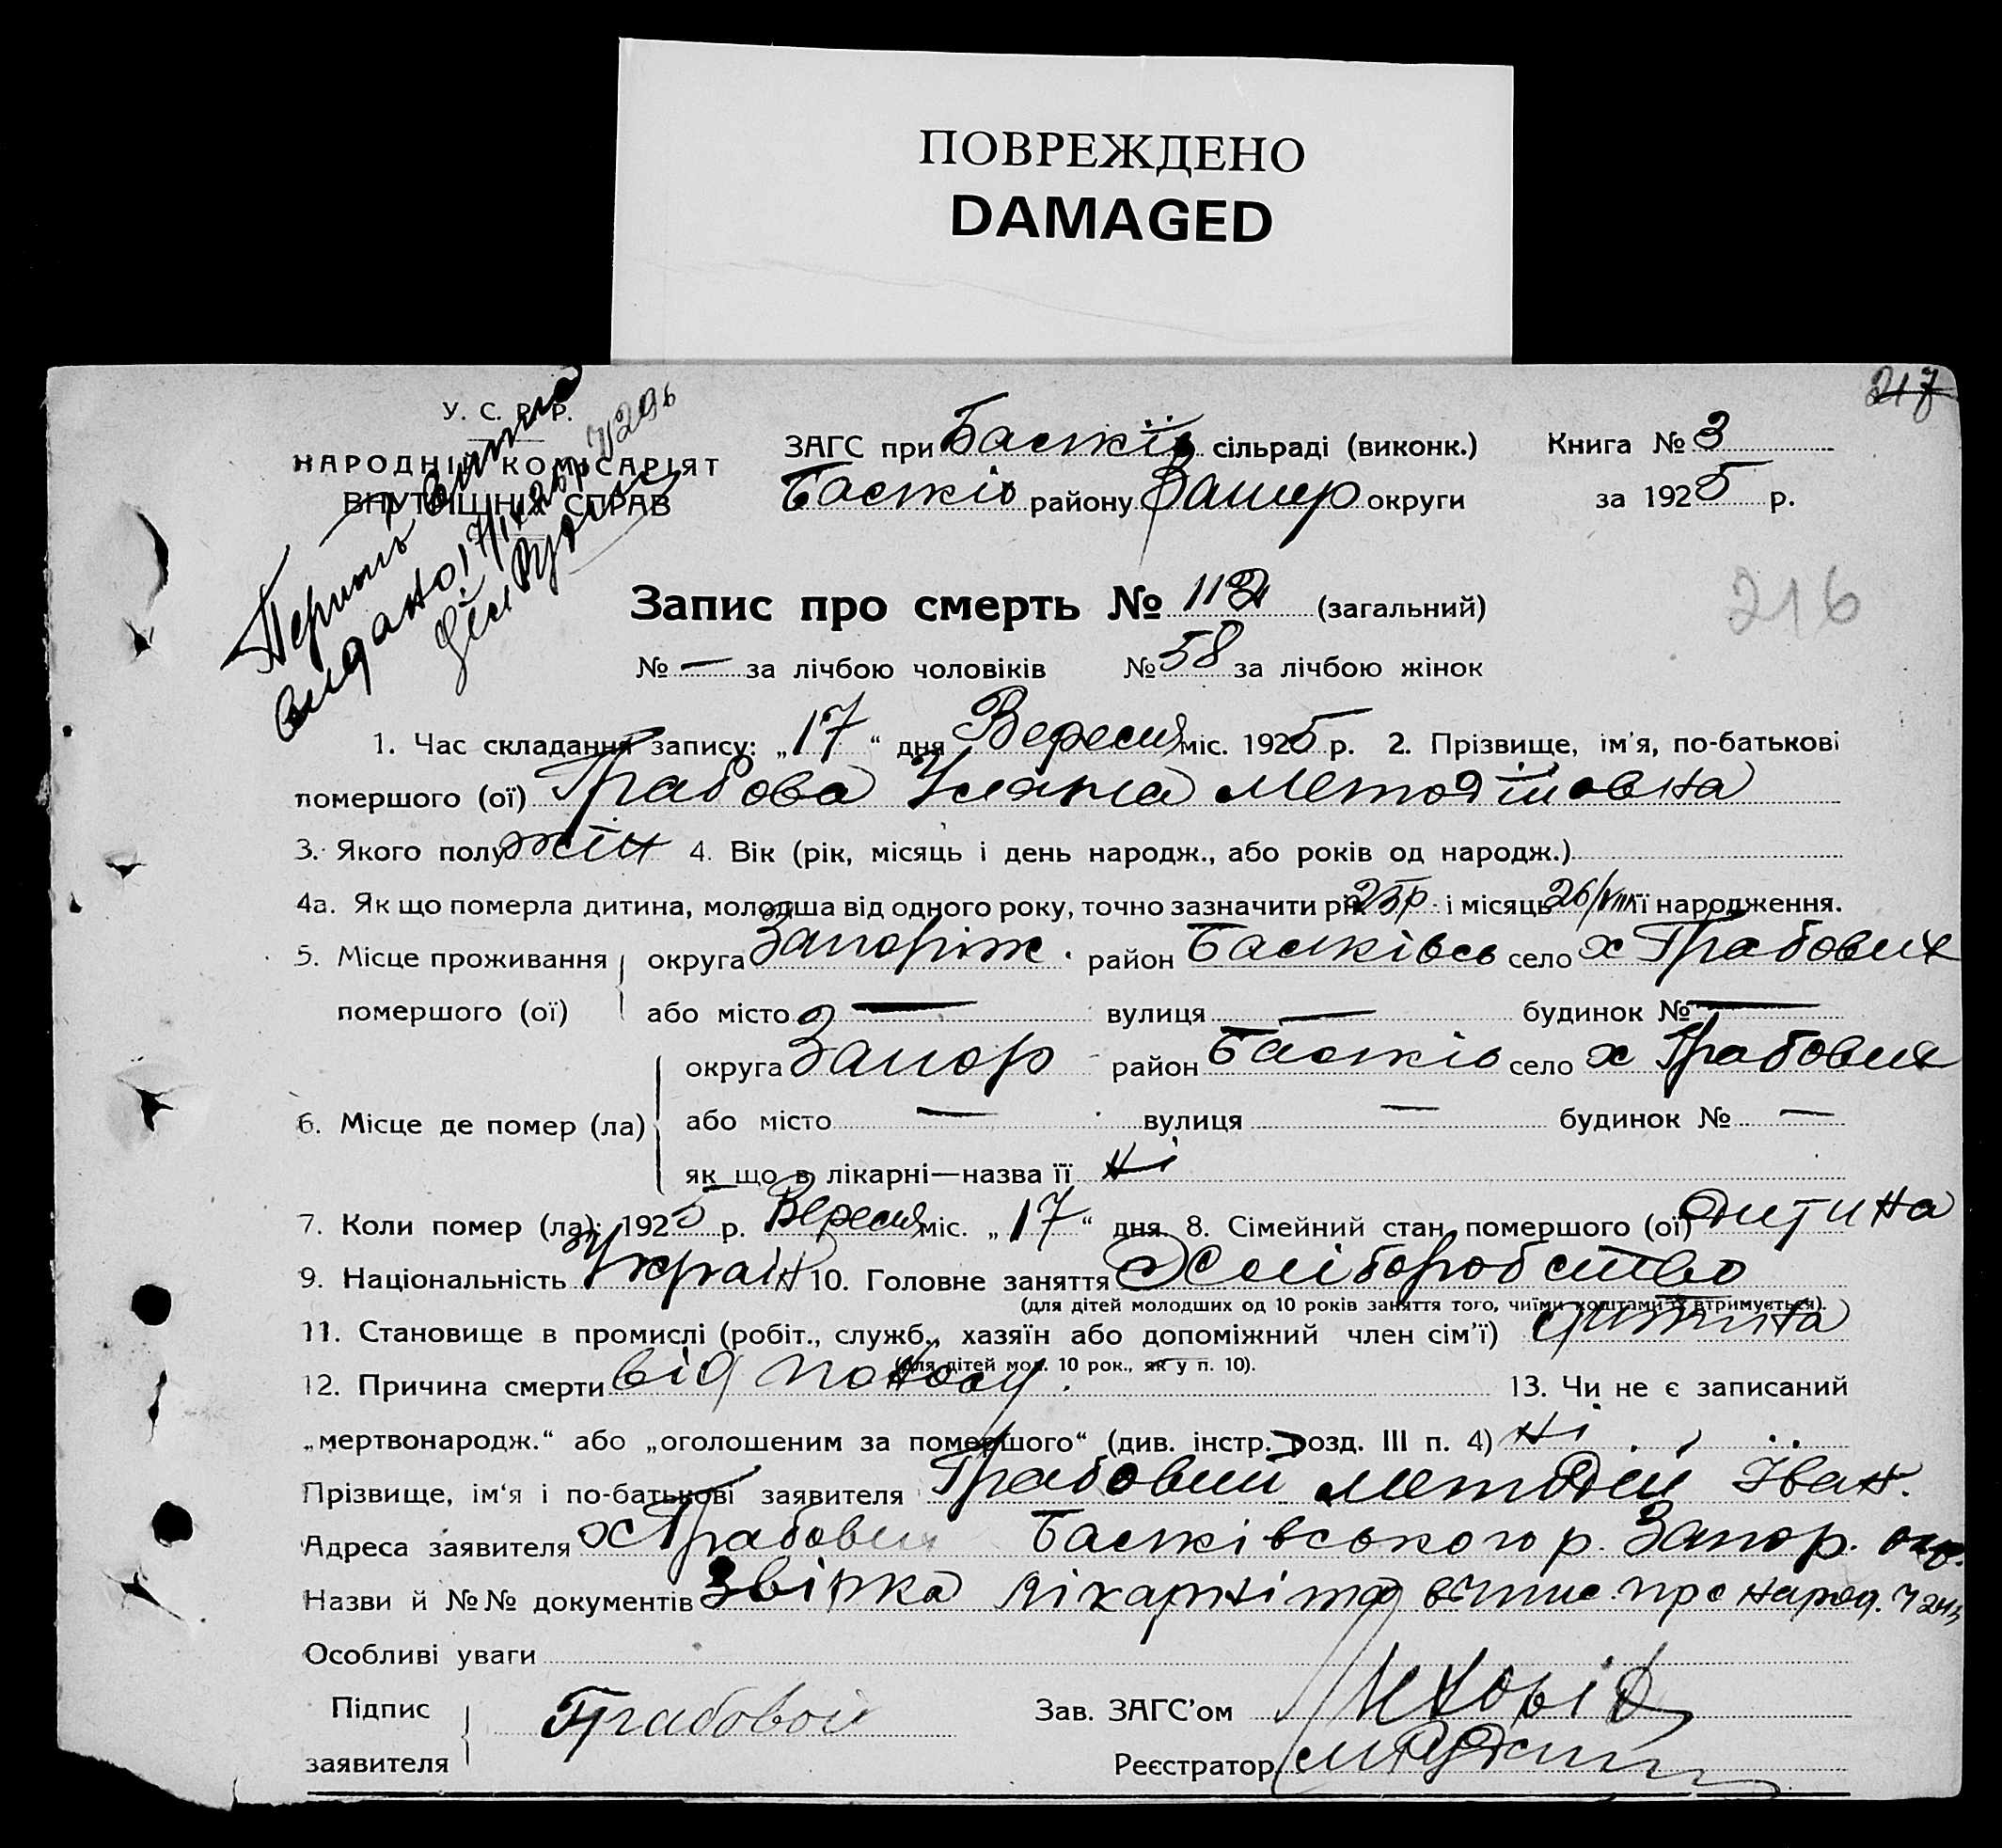 ПОВРЕЖДЕНО
DAMAGED
217
У. С. Р. Р.
НАРОДНІЙ КОМІСАРІЯТ
ВНУТРІШНІХ СПРАВ
ЗАГС при Басткіїв сільраді (виконк.) Книга № 3
району Запор округи за 1925 р.
видано
216
Запис про смерть № 112 (загальний)
№ — за лічбою чоловіків № 58 за лічбою жінок
1. Час складання запису: „17“ дня Вересня міс. 1925 р. 2. Прізвище, ім'я, по-батькові
помершого (ої) Грабова Уляна Методіївна
3. Якого полу жін 4. Вік (рік, місяць і день народж., або років од народж.)
4а. Як що померла дитина, молодша від одного року, точно зазначити рік 25р. і місяць 26/VIII її народження.
5. Місце проживання округа Запоріж. район село х Грабовий
помершого (ої) або місто — вулиця — будинок № —
округа Запор район село х Грабовий
6. Місце де помер (ла) або місто — вулиця — будинок № —
як що в лікарні—назва її ні
7. Коли помер (ла): 1925 р. Вересня міс. „17“ дня 8. Сімейний стан помершого (ої) дитина
9. Національність Україн 10. Головне заняття Хліборобство
(для дітей молодших од 10 років заняття того, чиїми коштами їх втримується).
11. Становище в промислі (робіт., служб., хазяїн або допоміжний член сім'ї) дитина
(для дітей мол. 10 рок., як у п. 10).
12. Причина смерти від поносу. 13. Чи не є записаний
„мертвонародж.“ або „оголошеним за помершого“ (див. інстр. розд. III п. 4) ні
Прізвище, ім'я і по-батькові заявителя Грабовий Методій Іван.
Адреса заявителя х Грабовий р. Запор. окр.
Назви й №№ документів Звістка лікарні та випис про народ.
Особливі уваги
Підпис Грабовой Зав. ЗАГС'ом
заявителя Реєстратор